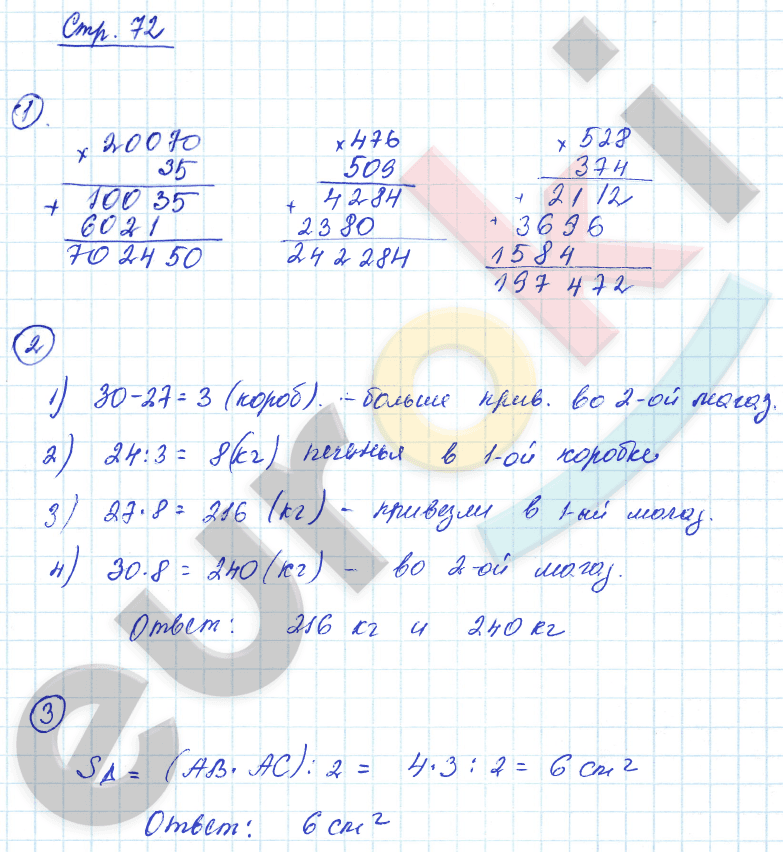 Стр. 72
1
× 20070 × 476 × 528
35 509 374
+ 100 35 + 4284 + 21 12
6021 2380 + 3696
702450 242 284 1584
197 472
2
1) 30-27=3 (короб). - больше прив. во 2-ой магаз.
2) 24:3 = 8(кг) печенья в 1-ой коробке
3) 27·8 = 216 (кг) - привезли в 1-ый магаз.
4) 30·8 = 240 (кг) - во 2-ой магаз.
Ответ: 216 кг и 240 кг
3
SΔ = (AB·AC):2 = 4·3:2 = 6 см²
Ответ: 6 см²
euroki